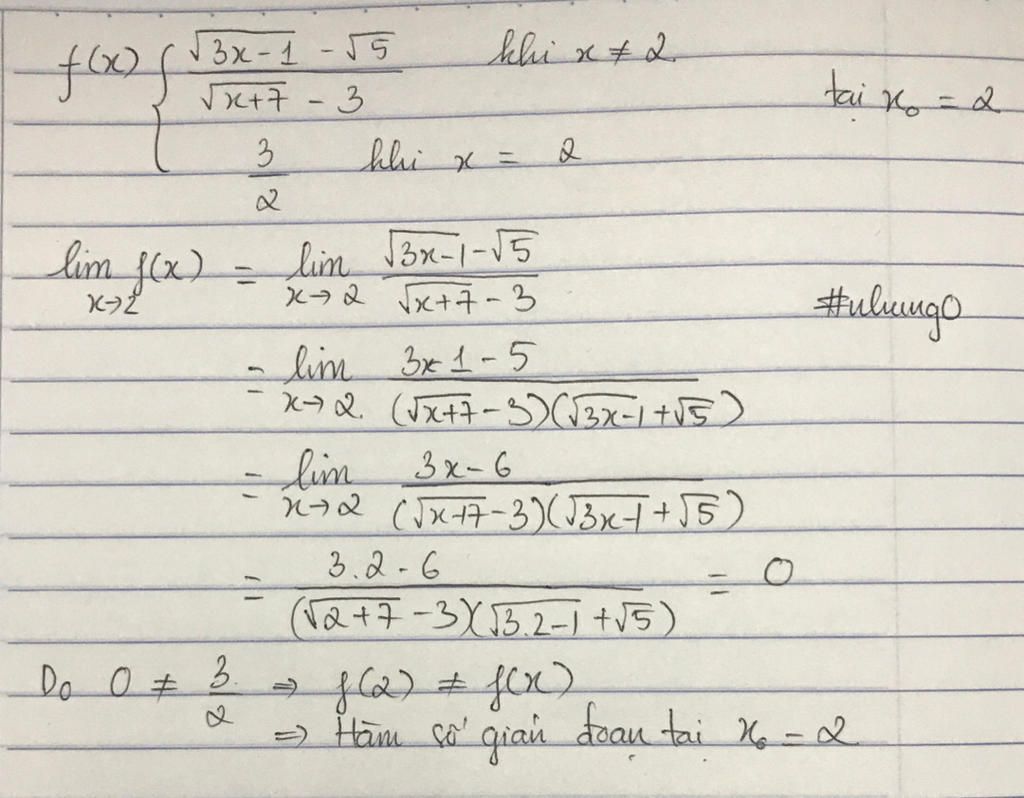 f(x) { (√(3x-1) - √5)/(√(x+7) - 3) khi x ≠ 2
tại x₀ = 2
3/2 khi x = 2
lim x→2 f(x) = lim x→2 (√(3x-1) - √5)/(√(x+7) - 3)
#nhung0
= lim x→2. (3x-1-5)/((√(x+7) - 3)(√(3x-1) + √5))
= lim x→2 (3x-6)/((√(x+7) - 3)(√(3x-1) + √5))
= (3.2-6)/((√(2+7) - 3)(√(3.2-1) + √5)) = 0
Do 0 ≠ 3/2 ⇒ f(2) ≠ f(x)
⇒ Hàm số gián đoạn tại x₀ = 2